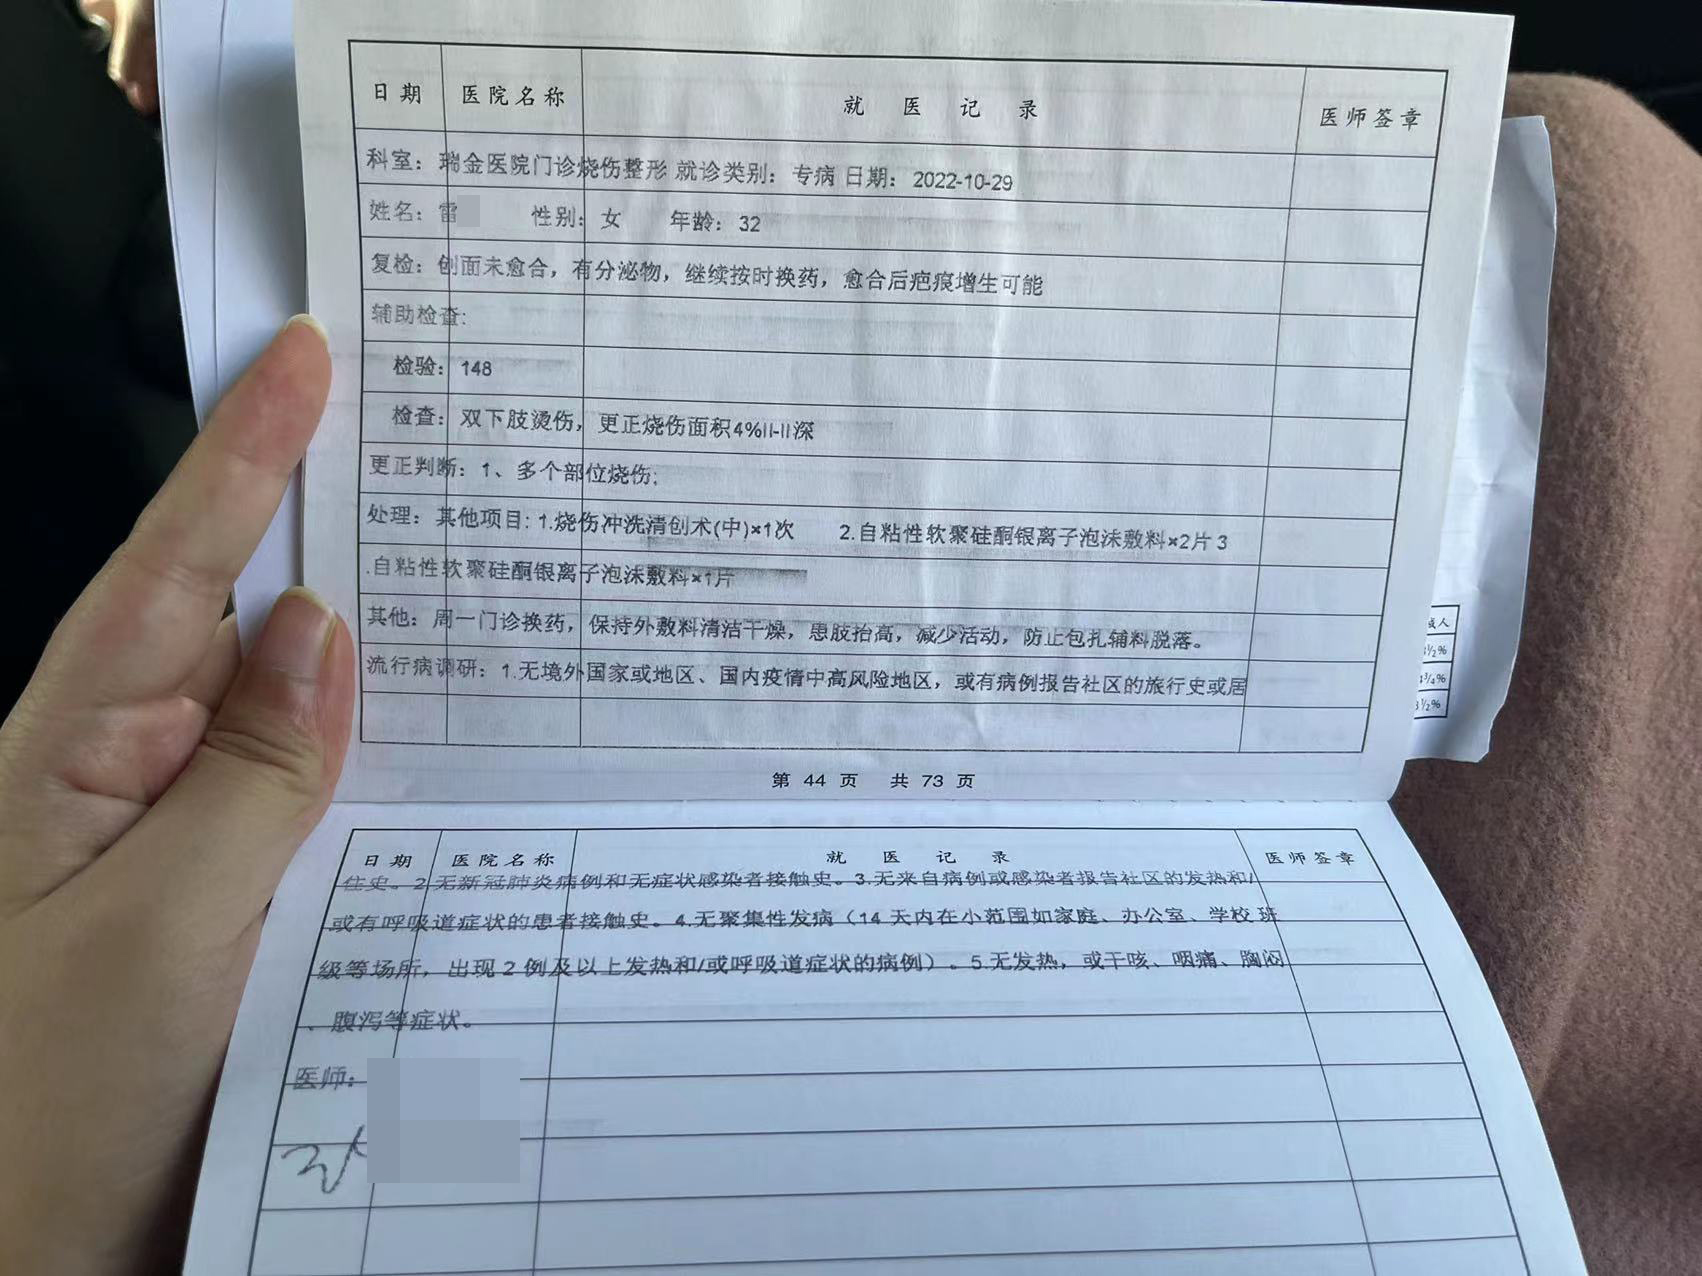 日期 医院名称 就医记录 医师签章
科室：瑞金医院门诊烧伤整形 就诊类别：专病 日期：2022-10-29
姓名：雷 性别：女 年龄：32
复检：创面未愈合，有分泌物，继续按时换药，愈合后疤痕增生可能
辅助检查:
检验：148
检查：双下肢烫伤，更正烧伤面积4%II-II深
更正判断：1、多个部位烧伤;
处理：其他项目: 1.烧伤冲洗清创术(中)×1次 2.自粘性软聚硅酮银离子泡沫敷料×2片 3
.自粘性软聚硅酮银离子泡沫敷料×1片
其他：周一门诊换药，保持外敷料清洁干燥，患肢抬高，减少活动，防止包扎辅料脱落。
流行病调研：1.无境外国家或地区、国内疫情中高风险地区，或有病例报告社区的旅行史或居
第 44 页 共 73 页
成人
3½%
4¾%
3½%
日期 医院名称 就医记录 医师签章
住史。2.无新冠肺炎病例和无症状感染者接触史。3.无来自病例或感染者报告社区的发热和/
或有呼吸道症状的患者接触史。4.无聚集性发病（14 天内在小范围如家庭、办公室、学校班
级等场所，出现 2 例及以上发热和/或呼吸道症状的病例）。5.无发热，或干咳、咽痛、胸闷
、腹泻等症状。
医师：